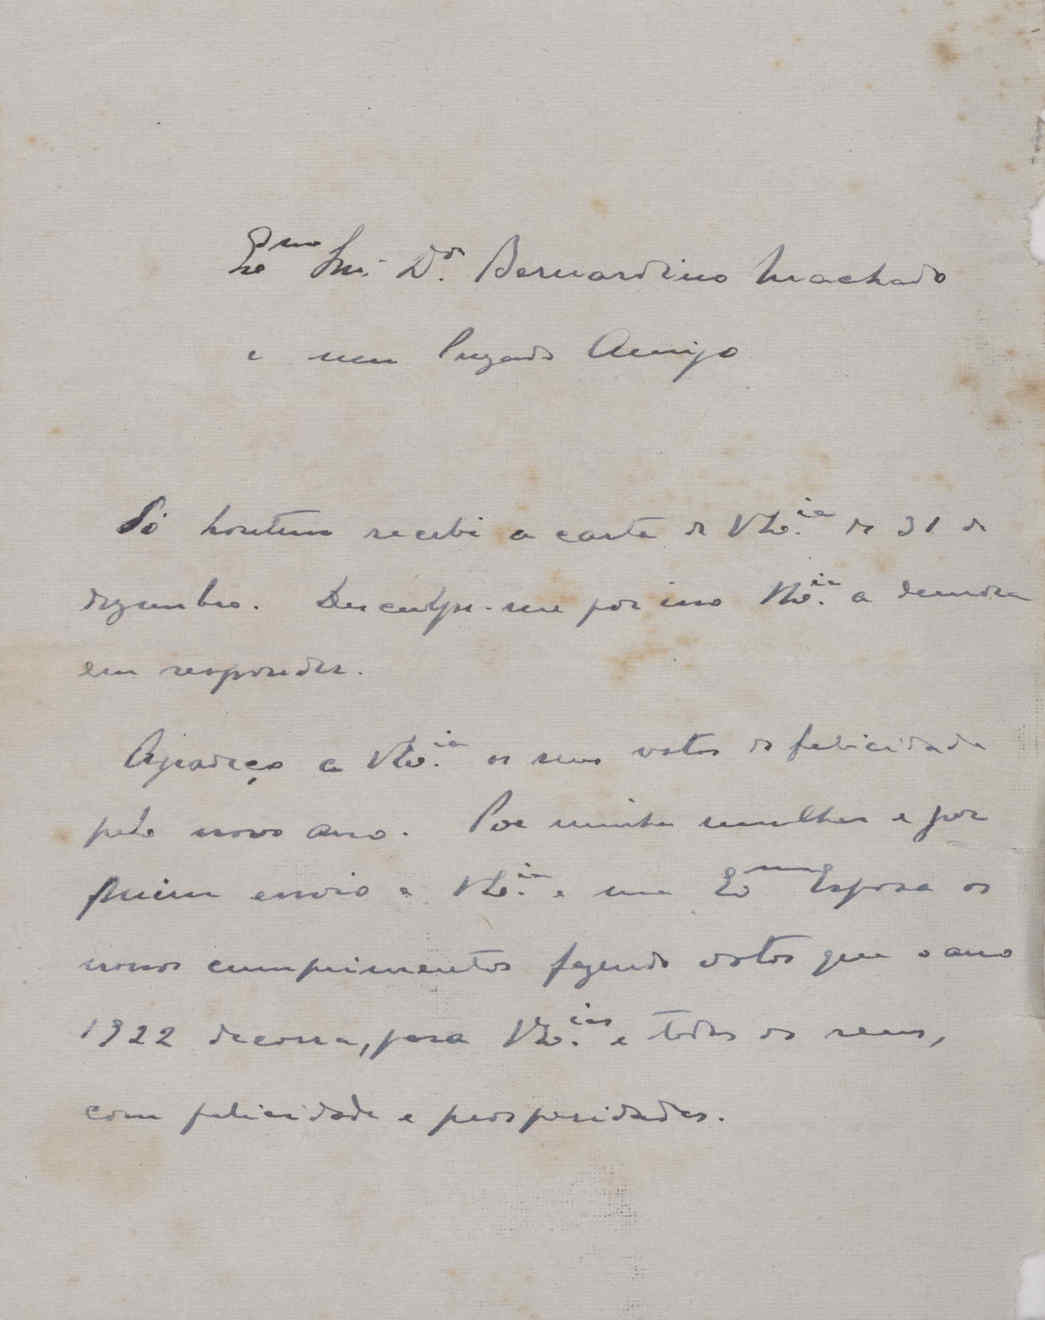 Exmo Snr. Dor. Bernardino Machado
e meu Prezado Amigo
Só hontem recebi a carta de V. Exia. de 31 de
dezembro. Desculpe-me por isso V. Exia. a demora
em responder.
Agradeço a V. Exia. os seus votos de felicidade
pelo novo ano. Por minha mulher e por
mim envio a V. Exia. e sua Exma Esposa os
nossos cumprimentos fazendo votos que o ano
1922 decorra, para V. Exias. e todos os seus,
com felicidade e prosperidades.